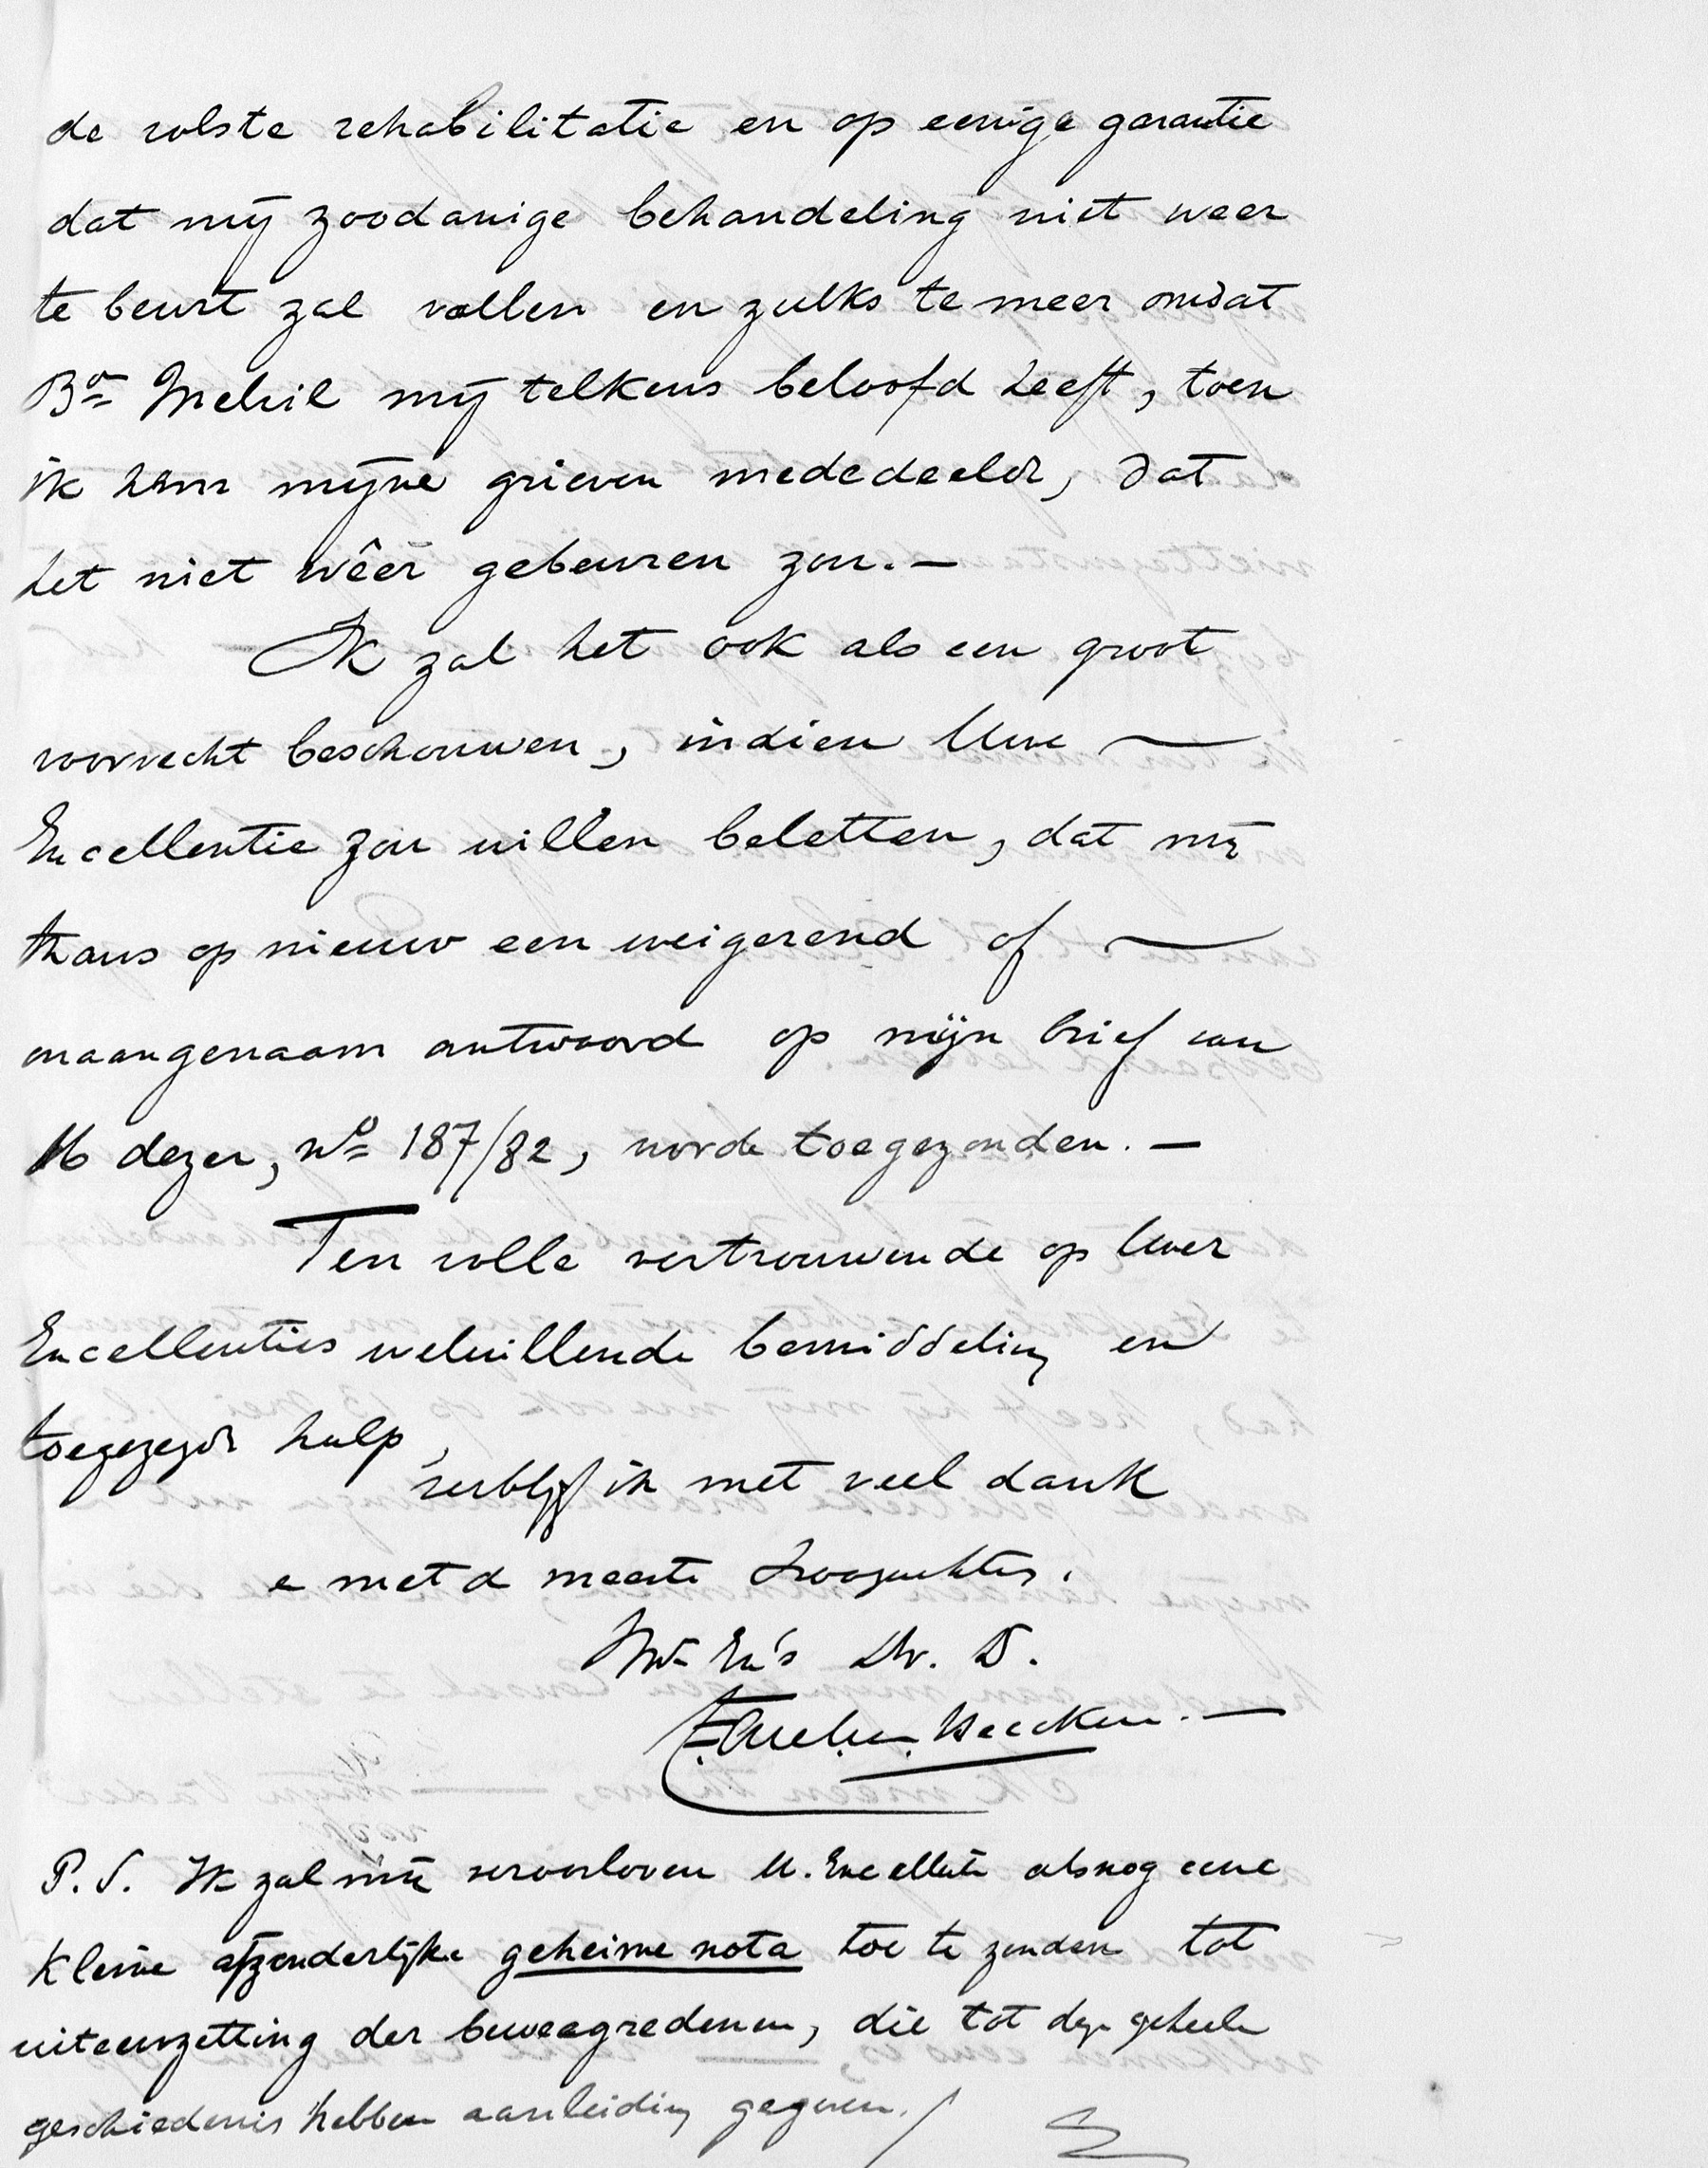 de volste rehabilitatie en op eenige garantie
dat mij zoodanige behandeling niet weer
te beurt zal vallen en zulks te meer omdat
Bon Melvil mij telkens beloofd heeft, toen
ik hem mijne grieven mededeelde, dat
het niet wêer gebeuren zou. —
Ik zal het ook als een groot
voorrecht beschouwen, indien Uwe —
Excellentie zou willen beletten, dat mij
thans op nieuw een weigerend of —
onaangenaam antwoord op mijn brief van
16 dezer, No 187/82, worde toegezonden. —
Ten volle vertrouwende op Uwer
Excellenties welwillende bemiddeling en
toegezegde hulp,
verblijf ik met veel dank
en met de meeste hoogachting.
Uw Ex's Dv. D.
P.S. Ik zal mij veroorloven U. Excellentie alsnog eene
kleine afzonderlijke geheime nota toe te zenden tot
uiteenzetting der beweegredenen, die tot deze geheele
geschiedenis hebben aanleiding gegeven. /